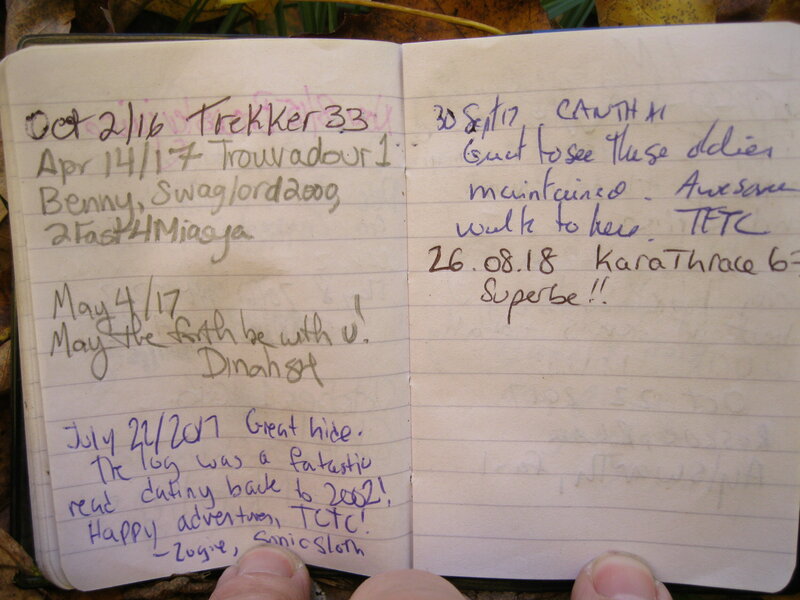 Oct 2/16 Trekker33
Apr 14/17 Trouvadour1
Benny, Swaglord2009
2Fast4Miasya
May 4/17
May the forth be with u!
Dinah84
July 22/2017 Great hide.
The log was a fatastic
read dating back to 2002!
Happy adventures, TCTC!
30 Sept 17 CANTHAI
Great to see these oldies
maintained. Awesome
walk to here. TFTC
26.08.18 KaraThrace
Superbe!!